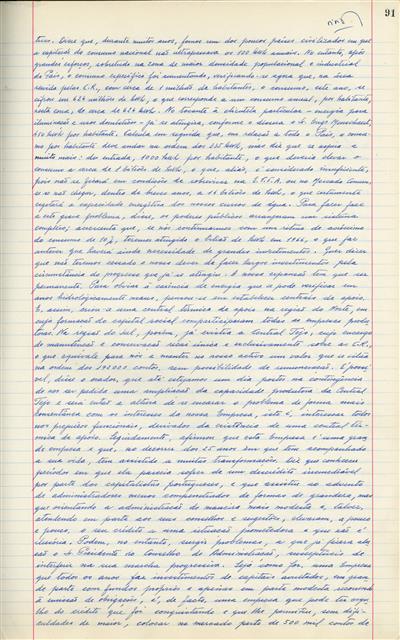 91
tivo. Disse que, durante muitos anos, fomos um dos poucos países civilizados em que
a capitação do consumo nacional não ultrapassava os 100 kwh anuais. No entanto, após
grandes esforços, sobretudo na zona de maior densidade populacional e industrial
do País, o consumo específico foi aumentando, verificando-se agora que, na área
servida pelas C.R., com cerca de 1 milhão de habitantes, o consumo, este ano, se
cifrou em 624 milhões de kwh, o que corresponde a um consumo anual, por habitante,
nesta zona, de cerca de 624 kwh. No tocante à chamada particular - energia para
iluminação e usos domésticos - já se atingiu, conforme o dissera o Sr. Engº
450 kwh por habitante. Calcula em seguida que, em relação a todo o País, o consu-
mo por habitante deve andar na ordem dos 535 kwh, mas diz que se espera
muito mais: dos entanto, 1000 kwh por habitante, o que deveria elevar o
consumo a cerca de 9 biliões de kwh, o que, aliás, é considerado insuficiente,
pois não se ficará em condições de sobreviver na E.F.T.A. ou no Mercado Comum,
se se não chegar, dentro de breves anos, a 16 biliões de kwh, o que certamente
esgotará a capacidade energética dos nossos cursos de água. Para fazer face
a este grave problema, disse, os poderes públicos arranjaram um sistema
complexo; acrescenta que, se nós continuarmos com um ritmo de acréscimo
do consumo de 10%, teremos atingido o bilião de kwh em 1966, o que faz
antever que haverá ainda necessidade de grandes investimentos. Quer dizer
que não teremos cessado o nosso dever de fazer largos investimentos pela
circunstância do progresso que já se atingiu. A nossa expansão tem que ser
permanente. Para obviar à carência de energia que se pode verificar em
anos hidrologicamente maus, pensou-se em estabelecer centrais de apoio.
E, assim, criou-se uma central térmica de apoio na região do Norte, em
cuja formação do capital social comparticiparam todas as empresas produ-
toras. Na região do sul, porém, já existia a Central Tejo, cujo encargo
de manutenção e conservação recai única e exclusivamente sobre as C.R.,
o que equivale para nós a manter no nosso activo um valor que se situa
na ordem dos 190000 contos, sem possibilidade de remuneração. É possí-
vel, disse o orador, que até estejamos um dia postos na contingência
de nos ser pedida uma ampliação da capacidade produtora da Central
Tejo e será então a altura de se encarar o problema de forma mais
consentânea com os interesses da nossa Empresa, isto é, interessar todos
nos prejuízos funcionais, derivados da existência de uma central tér-
mica de apoio. Seguidamente, afirmou que esta Empresa é uma gran-
de empresa e que, no decorrer dos 25 anos em que tem acompanhado
a sua vida, tem assistido a muitas transformações. Diz que houve um
período em que ela parecia sofrer de um descrédito irremediável
por parte dos capitalistas portugueses, e que assistiu ao advento
de administradores menos compenetrados de formas de grandeza, mas
que orientando a administração de maneira mais modesta e, talvez,
atendendo em parte aos seus conselhos e sugestões, elevaram, a pouco
e pouco, o seu crédito a uma situação prometedora e que não é i-
lusória. Podem, no entanto, surgir problemas, a que já fizera alu-
são o Sr. Presidente do Conselho de Administração, susceptíveis de
interferir na sua marcha progressiva. Seja como for, uma Empresa
que todos os anos faz investimentos de capitais avultados, em gran-
de parte com fundos próprios e apenas em parte modesta recorrendo
à emissão de obrigações, é, de facto, uma empresa que pode ter orgu-
lho do crédito que foi conquistando e que lhe permitiu, sem difi-
culdades de maior, colocar no mercado perto de 500 mil contos de